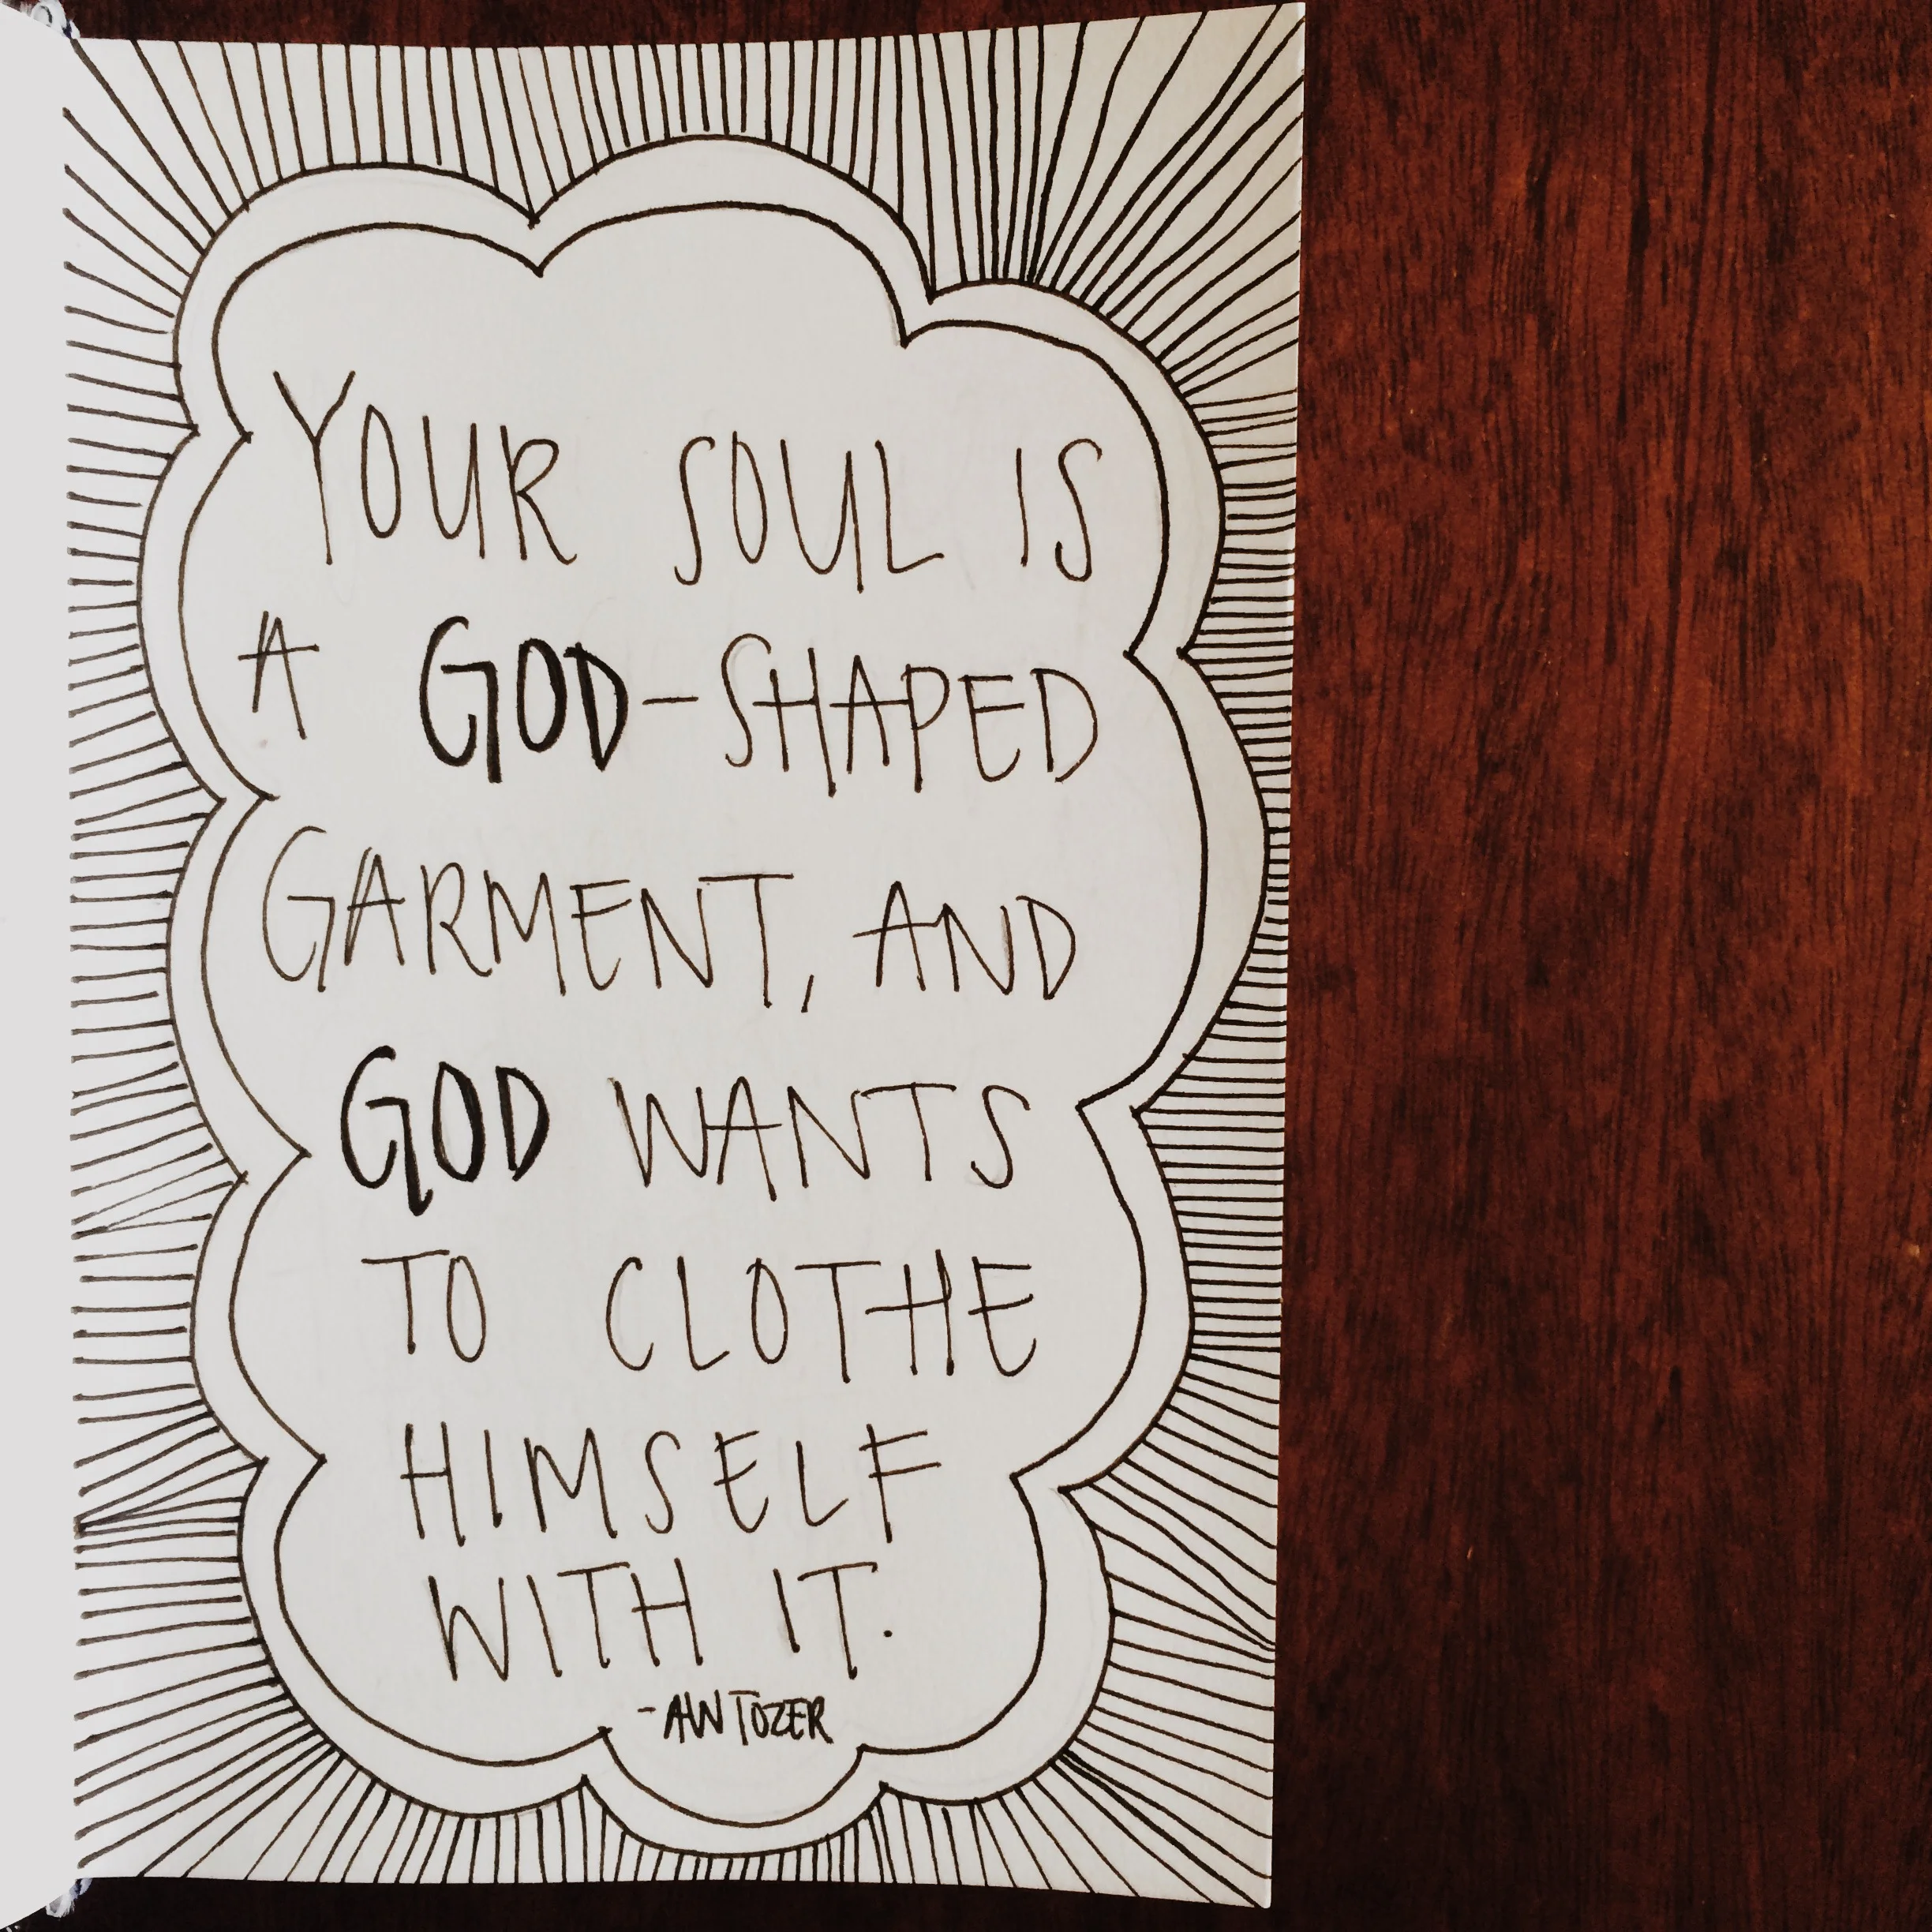 YOUR SOUL IS
A GOD-SHAPED
GARMENT, AND
GOD WANTS
TO CLOTHE
HIMSELF
WITH IT.
-AW TOZER